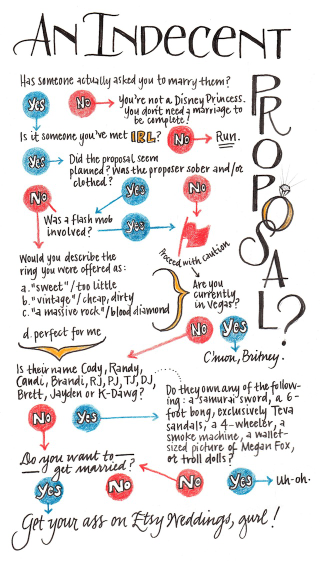 AN INDECENT
PROPOSAL?
Has someone actually asked you to marry them?
Yes
No
You're not a Disney Princess.
You don't need a marriage to
be complete!
Is it someone you've met IRL?
No
Run.
Yes
Did the proposal seem
planned? Was the proposer sober and/or
clothed?
Yes
No
No
Was a flash mob
involved?
Yes
Proceed with caution
Would you describe the
ring you were offered as:
a. "sweet"/too little
b. "vintage"/cheap, dirty
c. "a massive rock"/blood diamond
d. perfect for me
Are you
currently
in Vegas?
No
Yes
C'mon, Britney.
Is their name Cody, Randy,
Candi, Brandi, RJ, PJ, TJ, DJ,
Brett, Jayden or K-Dawg?
Do they own any of the follow-
ing: a samurai sword, a 6-
foot bong, exclusively Teva
sandals, a 4-wheeler, a
smoke machine, a wallet-
sized picture of Megan Fox,
or troll dolls?
No
Yes
Do you want to
get married?
Yes
No
No
Yes
Uh-oh.
Get your ass on Etsy Weddings, gurl!